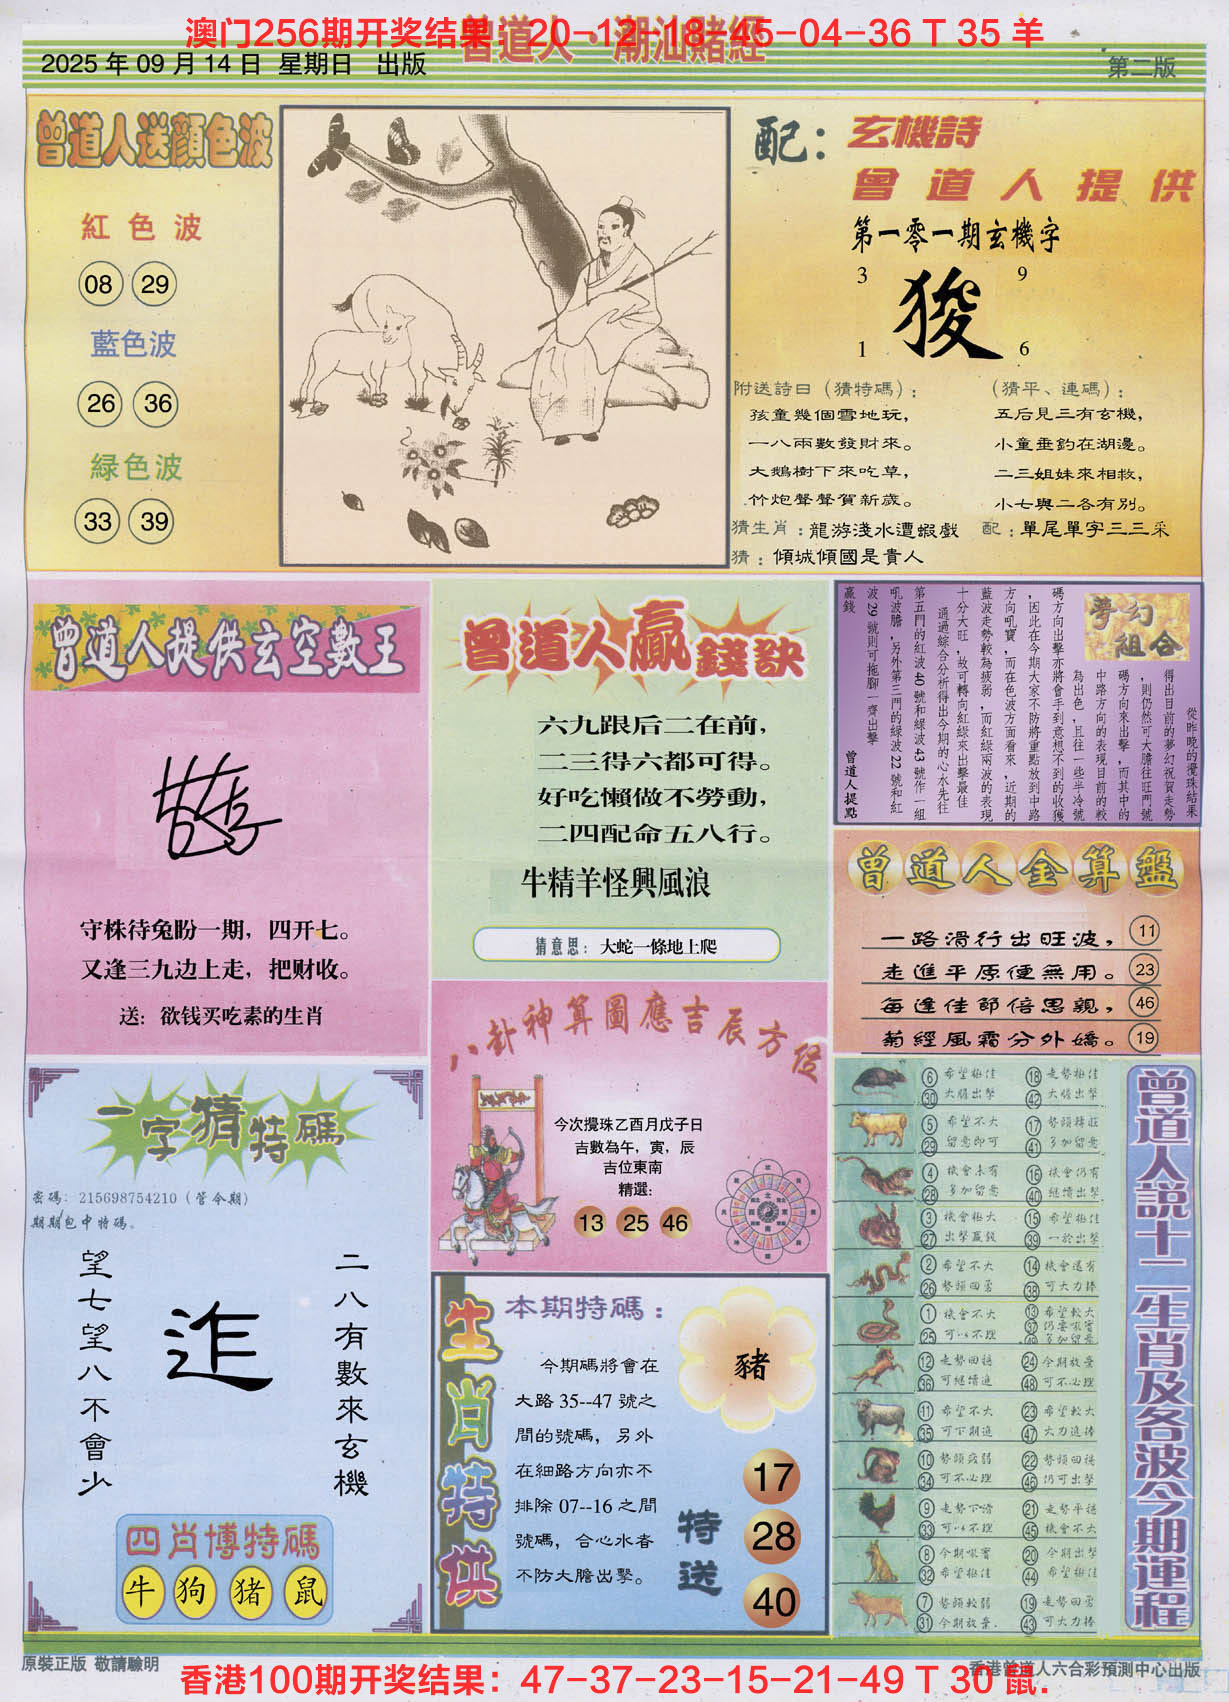 澳门256期开奖结果：20-12-18-45-04-36 T 35 羊
曾道人·潮汕賭經
2025 年 09 月 14 日 星期日 出版
第二版
曾道人送顏色波
紅色波
08 29
藍色波
26 36
綠色波
33 39
配：玄機詩
曾道人提供
第一零一期玄機字
3 9
狻
1 6
附送詩曰（猜特碼）：
孩童幾個雪地玩，
一八兩數發財來。
大鵝樹下來吃草，
竹炮聲聲賀新歲。
（猜平、連碼）：
五后見三有玄機，
小童垂釣在湖邊。
二三姐妹來相救，
小七與二各有別。
猜生肖：龍游淺水遭蝦戲
配：單尾單字三三采
猜：傾城傾國是貴人
曾道人提供玄空數王
守株待兔盼一期，四开七。
又逢三九边上走，把财收。
送：欲钱买吃素的生肖
曾道人贏錢訣
六九跟后二在前，
二三得六都可得。
好吃懶做不勞動，
二四配命五八行。
牛精羊怪興風浪
猜意思：大蛇一條地上爬
夢幻組合
從昨晚的攪珠結果
得出目前的夢幻祝賀走勢
，則仍然可大膽往旺門號
碼方向來出擊，而其中的
中路方向的表現目前的較
為出色，且往一些半冷號
碼方向出擊亦將會手到意想不到的收獲
，因此在今期大家不防將重點放到中路
方向吼寶，而在色波方面看來，近期的
藍波走勢較為疲弱，而紅綠兩波的表現
十分大旺，故可轉向紅綠來出擊最佳
通過綜合分析得出今期的心水先往
第五門的紅波40號和綠波43號作一組
吼波膽，另外第三門的綠波22號和紅
波29號則可拖腳一齊出擊
贏錢
曾道人提點
曾道人金算盤
一路滑行出旺波， 11
走進平原便無用。 23
每逢佳節倍思親， 46
菊經風霜分外嬌。 19
八卦神算圖應吉辰方位
今次攪珠乙酉月戊子日
吉數為午，寅，辰
吉位東南
精選：
13 25 46
一字猜特碼
密碼：215698754210（管今期）
期期包中特碼。
二八有數來玄機
迮
望七望八不會少
四肖博特碼
牛 狗 猪 鼠
生肖特供
本期特碼：
豬
今期碼將會在
大路 35--47 號之
間的號碼，另外
在細路方向亦不
排除 07--16 之間
號碼，合心水者
不防大膽出擊。
特送
17
28
40
曾道人說十二生肖及各波今期運程
6 希望極佳 18 走勢極佳
30 大膽出擊 42 大膽出擊
5 希望不大 17 勢頭轉旺
29 留意即可 41 多加留意
4 機會未有 16 機會仍有
28 多加留意 40 繼續出擊
3 機會極大 15 希望極佳
27 出擊贏錢 39 一於出擊
2 希望不大 14 機會還有
26 勢頭回勇 38 可大力捧
1 機會不大 13 希望較大
25 可以不理 37 仍要吼實
49 多加留意
12 走勢回穩 24 今期放棄
36 可繼續進 48 可不必理
11 希望不大 23 希望較大
35 可下期進 47 大力進捧
10 勢頭疲弱 22 勢頭回穩
34 可不必理 46 仍可出擊
9 走勢下滑 21 走勢平穩
33 可以不理 45 機會不大
8 今期吼實 20 今期出擊
32 希望極佳 44 希望極佳
7 勢頭較弱 19 走勢回勇
31 今期放棄. 43 可大力捧
原裝正版 敬請驗明
香港曾道人六合彩預測中心出版
香港100期开奖结果：47-37-23-15-21-49 T 30 鼠.